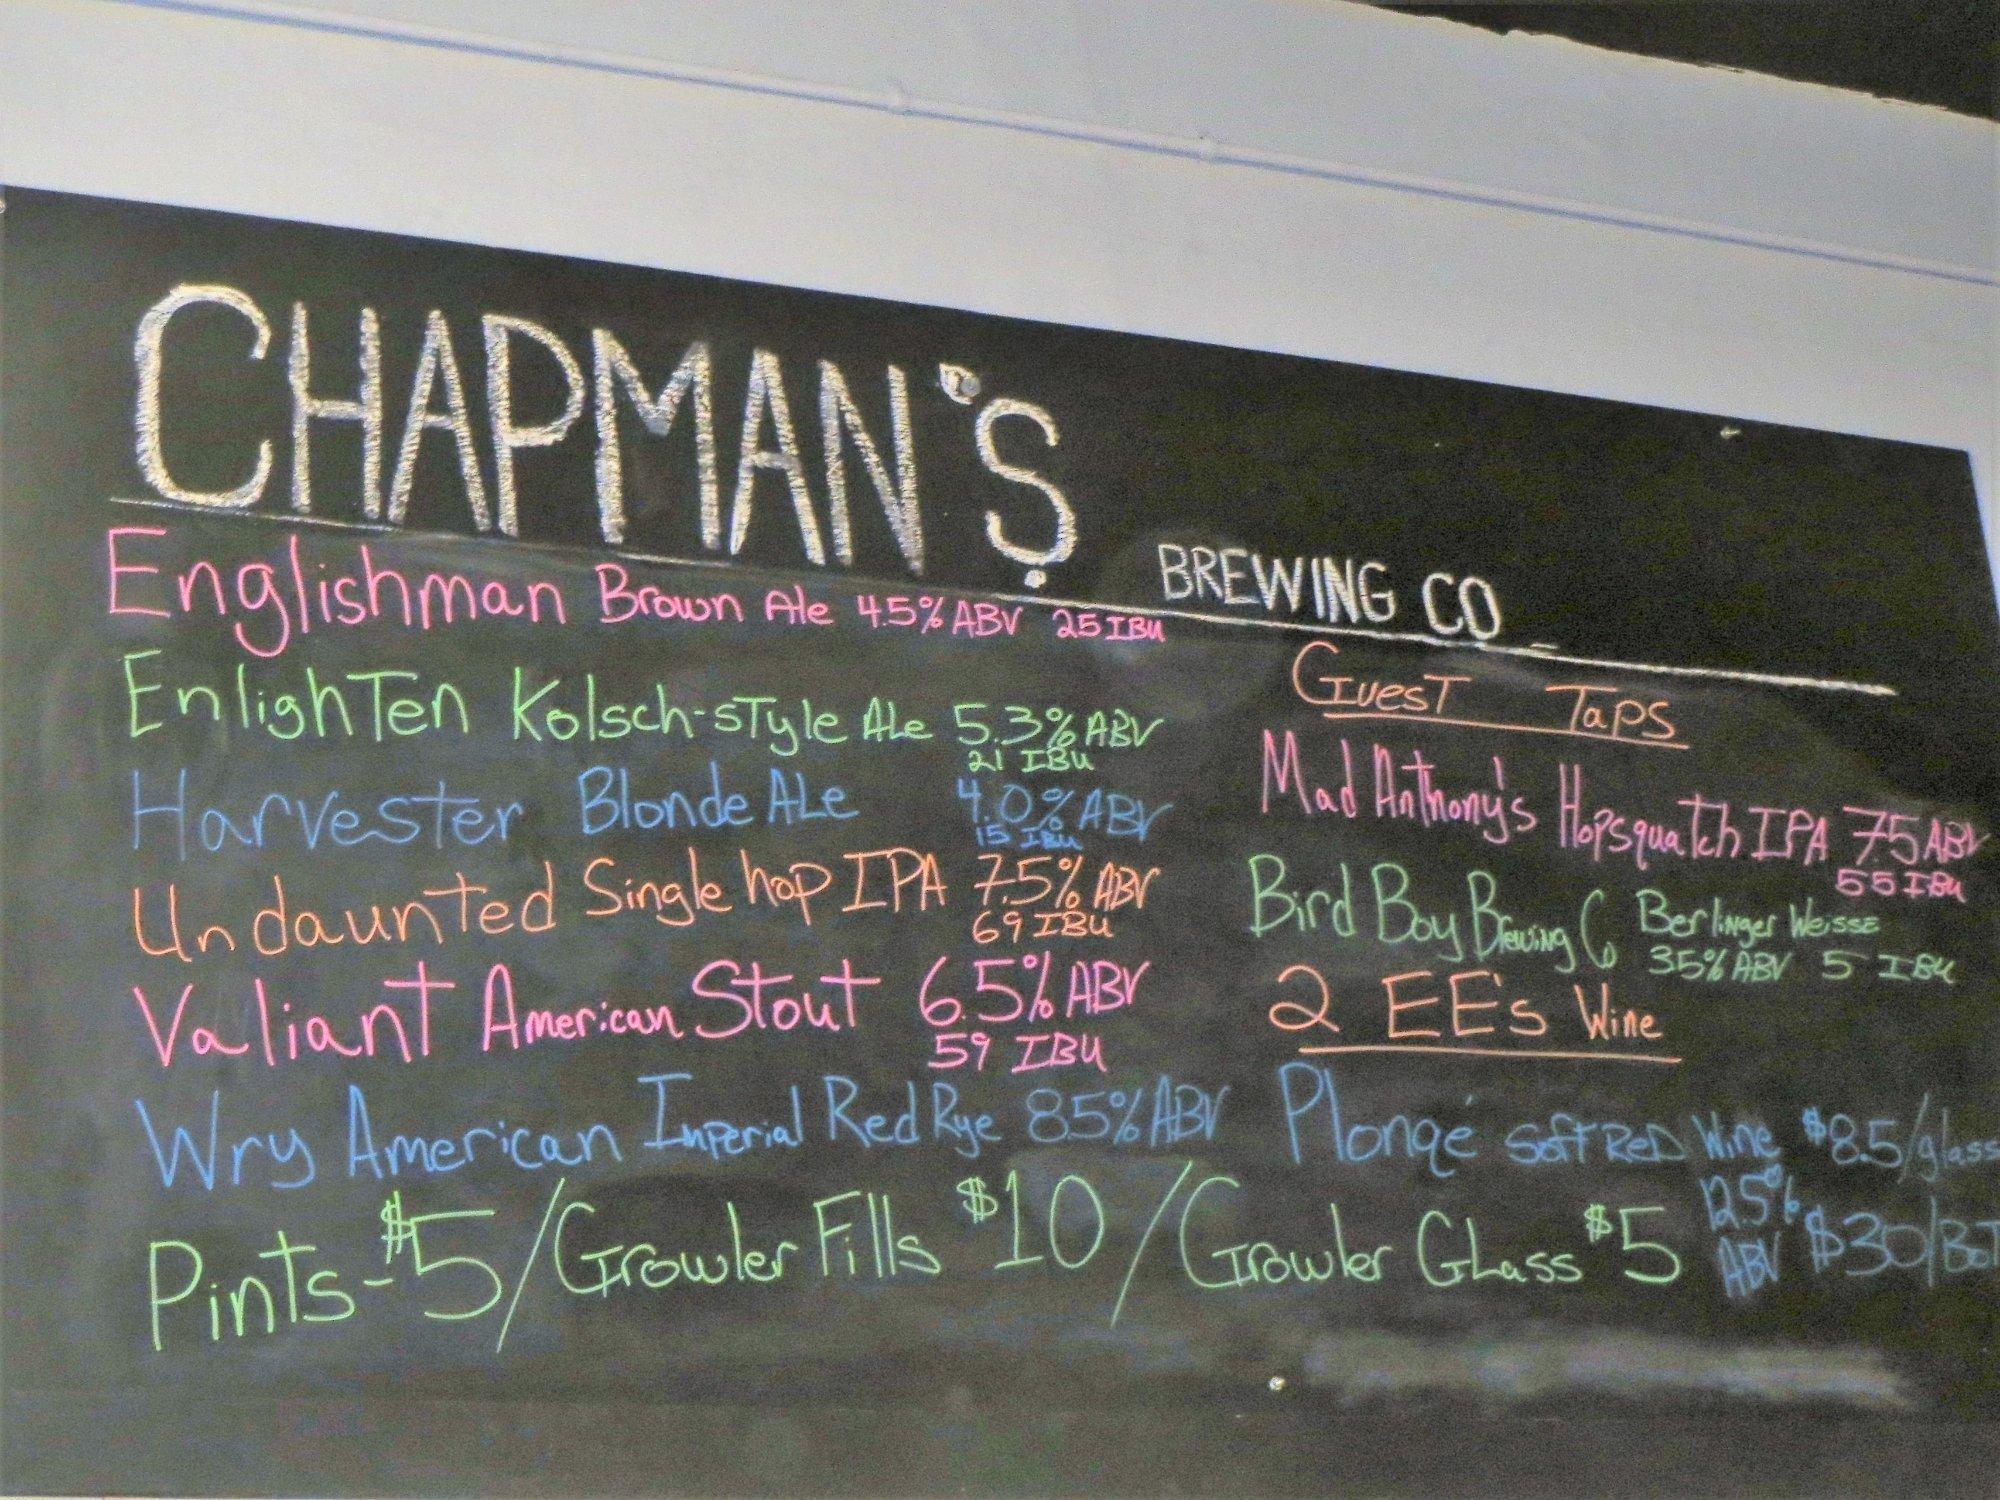 CHAPMAN'S
BREWING CO
Englishman Brown Ale 4.5% ABV 25 IBU
Enlighten Kolsch-style Ale 5.3% ABV
21 IBU
Harvester Blonde Ale 4.0% ABV
15 IBU
Undaunted Single hop IPA 7.5% ABV
69 IBU
Valiant American Stout 6.5% ABV
59 IBU
Wry American Imperial Red Rye 8.5% ABV
Guest Taps
Mad Anthony's Hopsquatch IPA 7.5 ABV
55 IBU
Bird Boy Brewing Co Berlinger Weisse
35% ABV 5 IBU
2 EE's Wine
Plonqé Soft Red Wine $8.5/glass
12.5% ABV $30/Bot
Pints-$5/Growler Fills $10/Growler Glass $5